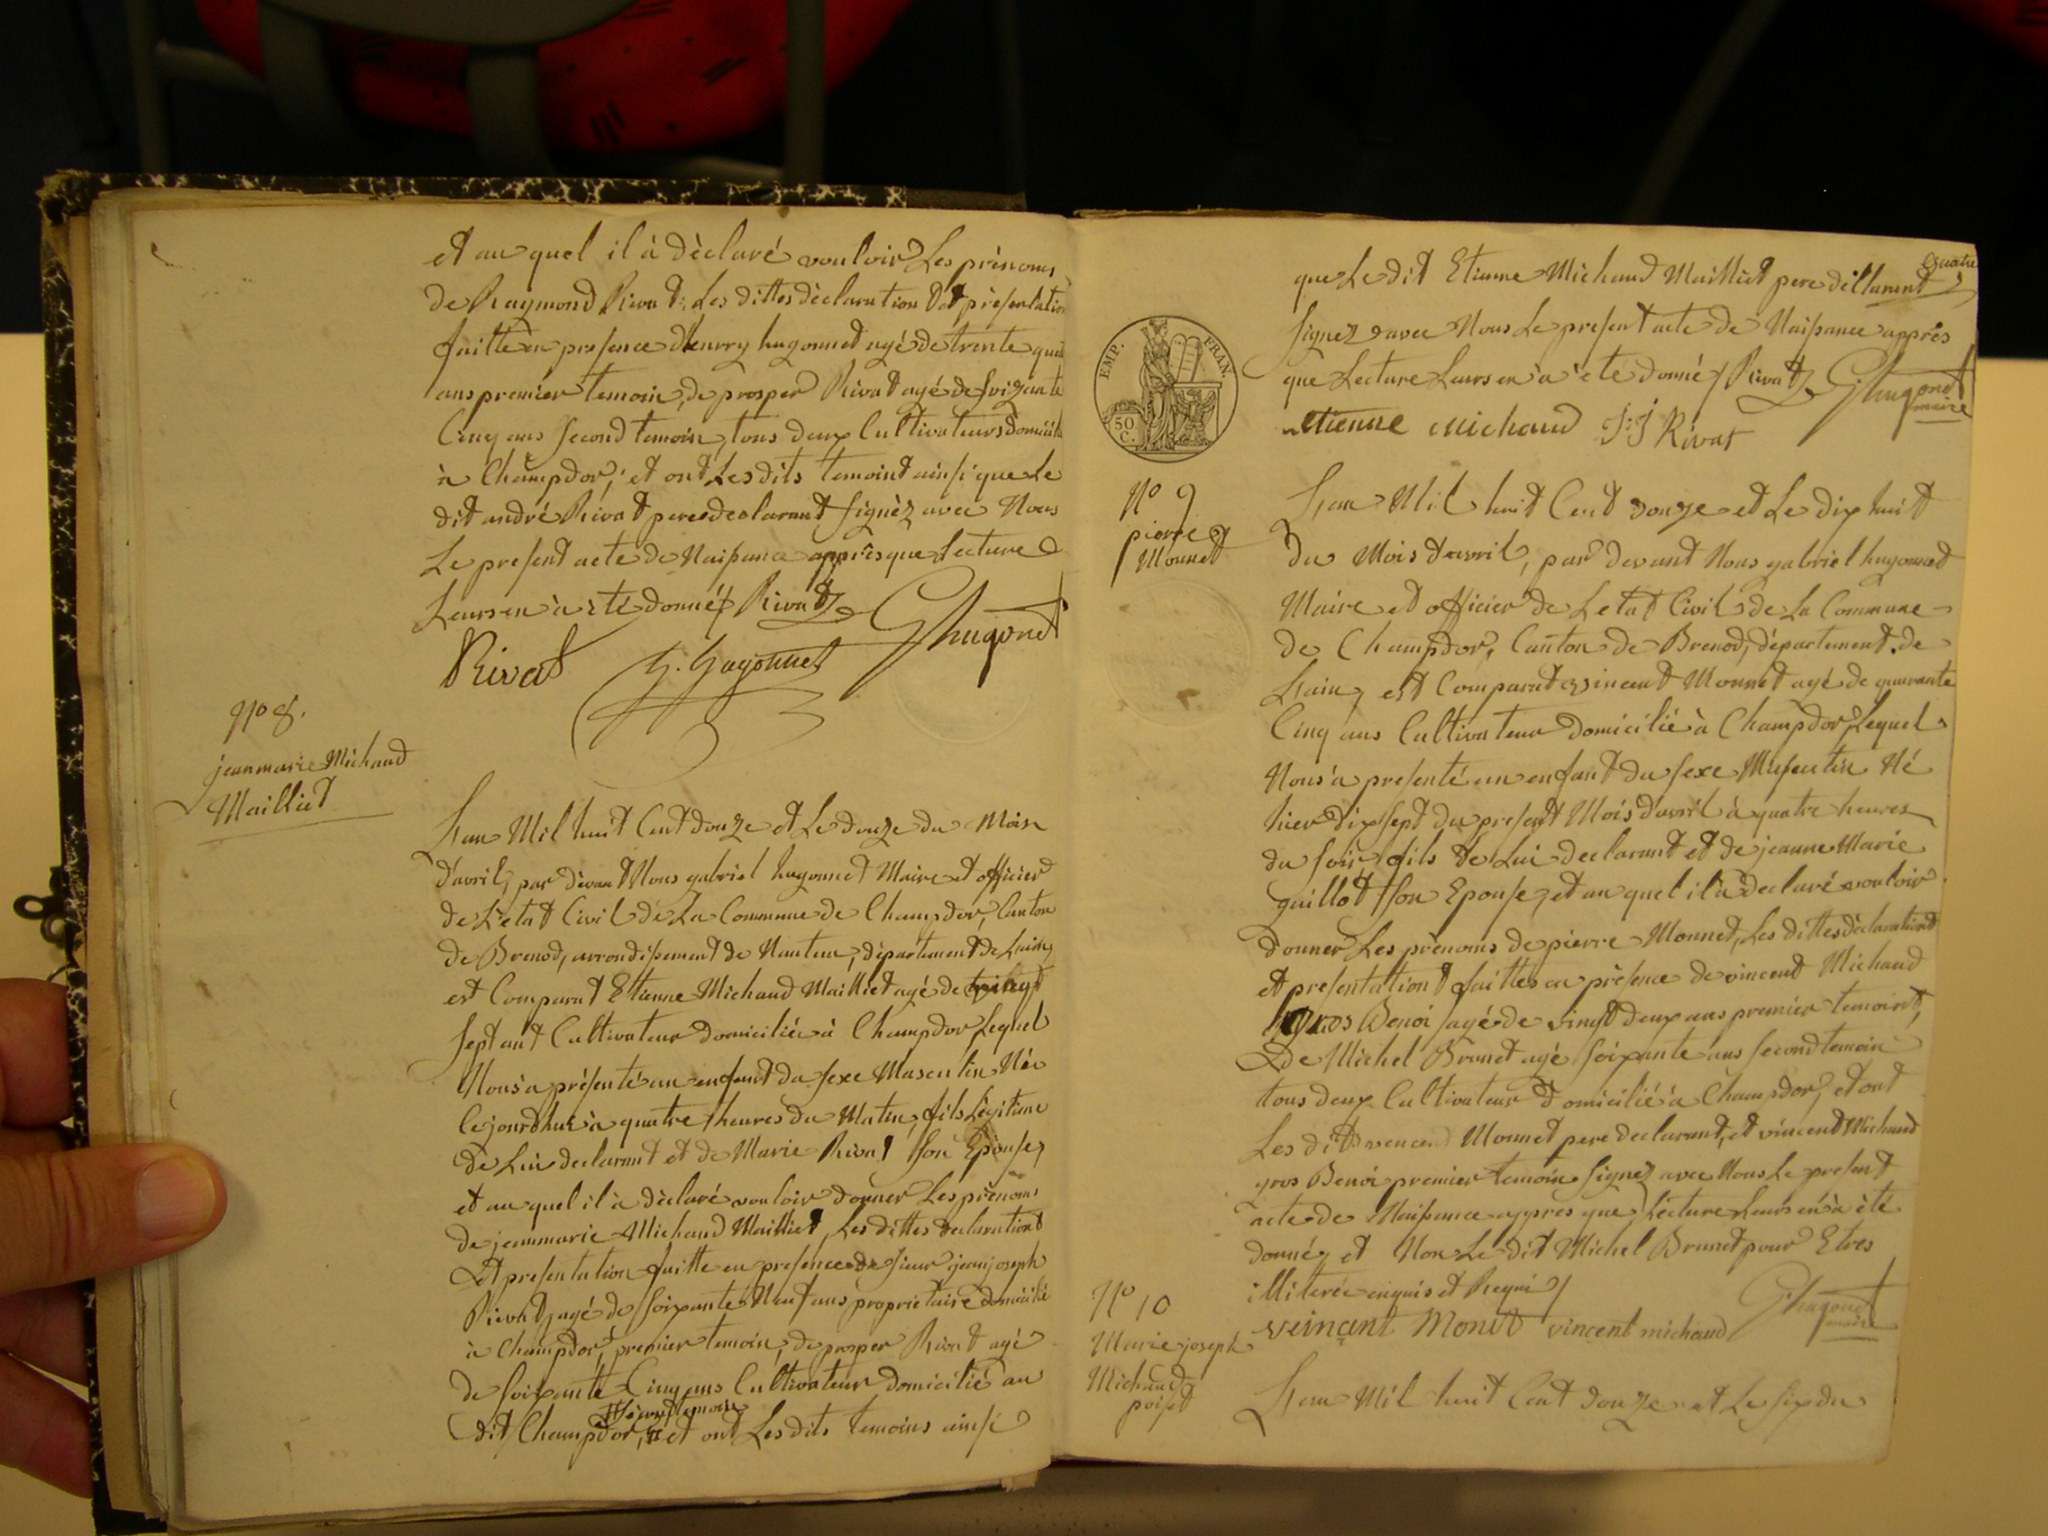 et au quel il à dèclaré vouloir Les prènoms
de Raymond Rivat; Les dittes dèclaration Et prèsentation
faitte en presence d'henrry hugonnet agé de trente
ans premier temoin, de prosper Rivat agé de soixante
Cinq ans second temoin, tous deux Cultivateurs domicilié
à Champdor, et ont Les dits temoint ainsi que Le
dit andré Rivat pere declarant signèz avec Nous
Le present acte de Naissance apprès que Lecture
Leurs en à été donnéz Rivat Ghugonet
Rivat h. hugonnet
No 8.
jeanmarie Michaud
Mailliet
Lan Mil huit Cent douze et Le douze du Mois
d'avril, par devant Nous gabriel hugonnet Maire et officier
de L'etat Civil de La Commune de Champdor, Canton
de Brenod, arrondissement de Nantua, département de Lain,
est Comparut Etienne Michaud Mailliet agé de
sept ant Cultivateur domiciliée à Champdor Lequel
Nous a présenté un enfant du sexe Masculin Née
Cejourdhui à quatre heures du Matin, fils Légitime
de Lui declarant et de Marie Rivat son Epouse,
et au quel il à dèclaré vouloir donner Les prènoms
de jeanmarie Michaud Mailliet, Les dittes declaration
Et presentation faitte en presence de sieur jean joseph
Rivat agé de soixante Neuf ans proprietaire domicilié
à Champdor, premier temoin, de prosper Rivat agé
de soixante Cinq ans Cultivateur domicilié au
second temoin
dit Champdor, et ont Les dits temoins ainsi
quatre
que Le dit Etienne Michaud Mailliet pere dèclarant
signez avec Nous Le present acte de Naissance apprès
que Lecture Leurs en à été donné Rivat Ghugonet
maire
etienne michaud J:J Rivat
EMP. FRAN.
50 C.
No 9
pierre
Monnet
Lan Mil huit Cent douze et Le dix huit
du Mois davril, par devant Nous gabriel hugonnet
Maire et officier de Letat Civil de La Commune
de Champdor, Canton de Brenod, département de
Lain, est Comparut vincent Monnet agé de quarante
Cinq ans Cultivateur domicilié à Champdor Lequel
Nous a presenté un enfant du sexe Masculin Né
hier dix sept du present Mois davril à quatre heures
du soir fils de Lui declarant et de jeanne Marie
guillot son Epouse, et au quel il à declaré vouloir
donner Les prènoms de pierre Monnet, Les dittes dèclaration
et presentation faittes en prèsence de vincent Michaud
gros Benoi agé de vingt deux ans premier temoint,
De Michel Brunet agé soixante ans second temoin
tous deux Cultivateur domicilié à Champdor, et ont
Les dit vencend Monnet pere declarant, et vincent Michaud
gros Benoi premier temoin signez avec Nous Le present
acte de Naissance apprès que Lecture Leurs en à été
donné, et Non Le dit Michel Brunet pour Etres
illiterée enquis et Requi
veinçant Monet vincent michaud Ghugonet
maire
No 10
Marie joseph
Michaud
poiset
Lan Mil huit Cent douze et Le six du